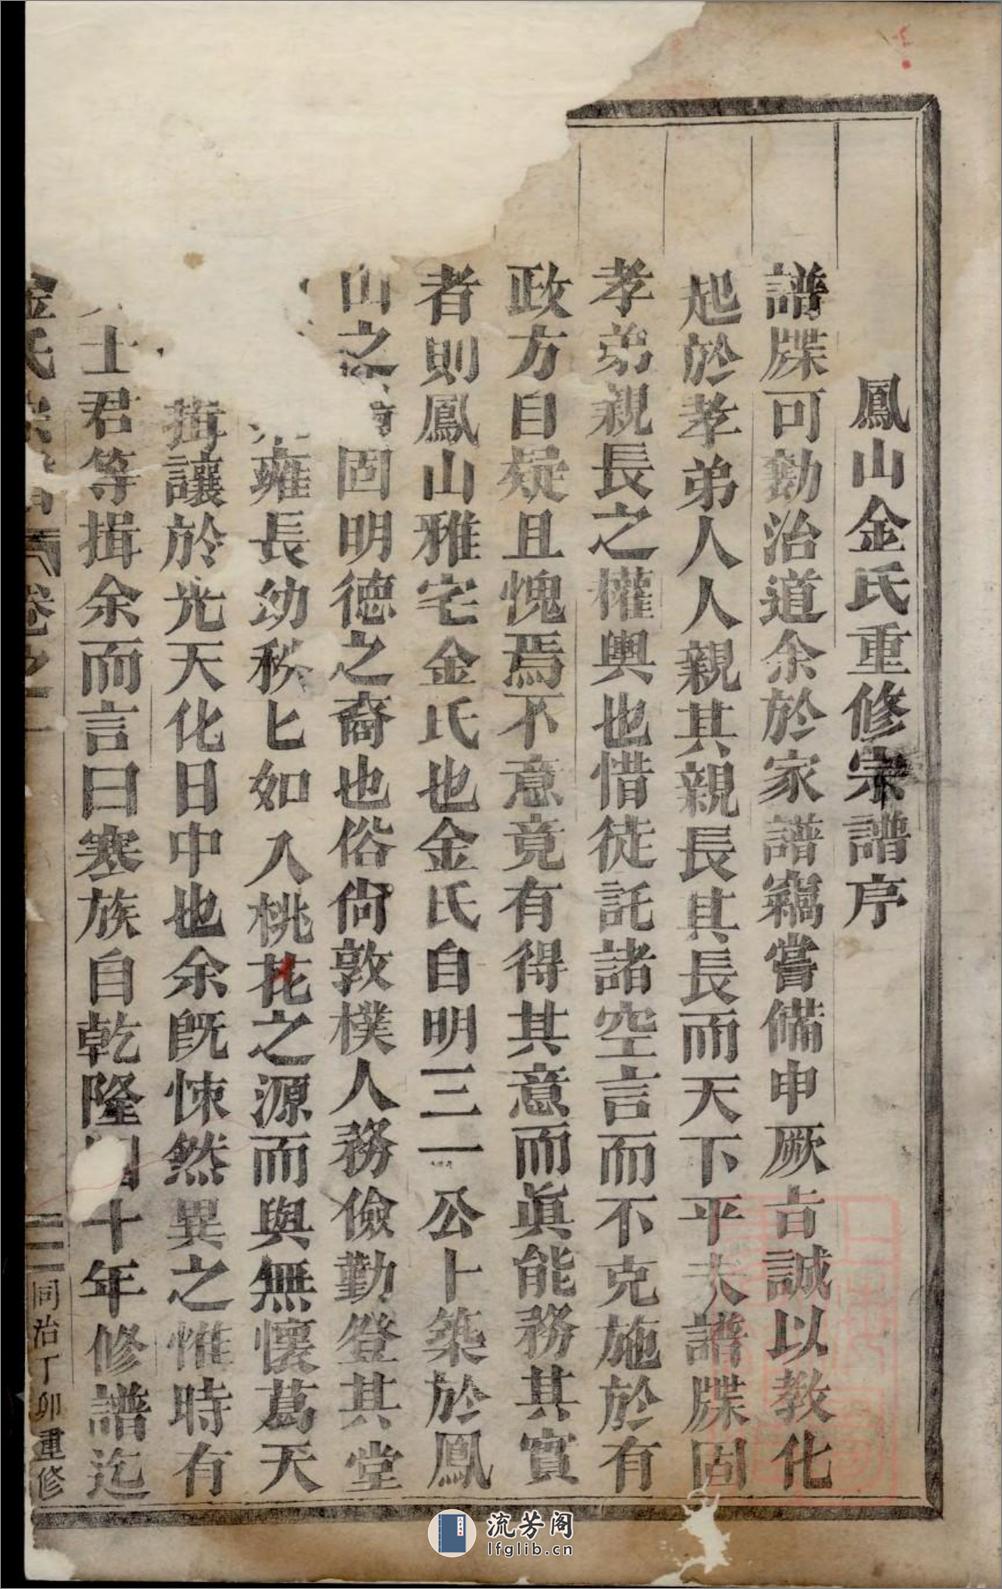 鳳山金氏重修宗譜序
譜牒可勷治道余於家譜竊嘗備申厥旨誠以教化
起於孝弟人人親其親長其長而天下平夫譜牒固
孝弟親長之權輿也惜徒託諸空言而不克施於有
政方自疑且愧焉不意竟有得其意而眞能務其實
者則鳳山雅宅金氏也金氏自明三一公卜築於鳳
山之 固明德之裔也俗尙敦樸人務儉勤登其堂
雍長幼秩匕如入桃花之源而與無懷葛天
揖讓於光天化日中也余旣悚然異之惟時有
士君等揖余而言曰寒族自乾隆四十年修譜迄
金氏宗譜 卷之一
三 同治丁卯重修
流芳阁
lfglib.cn